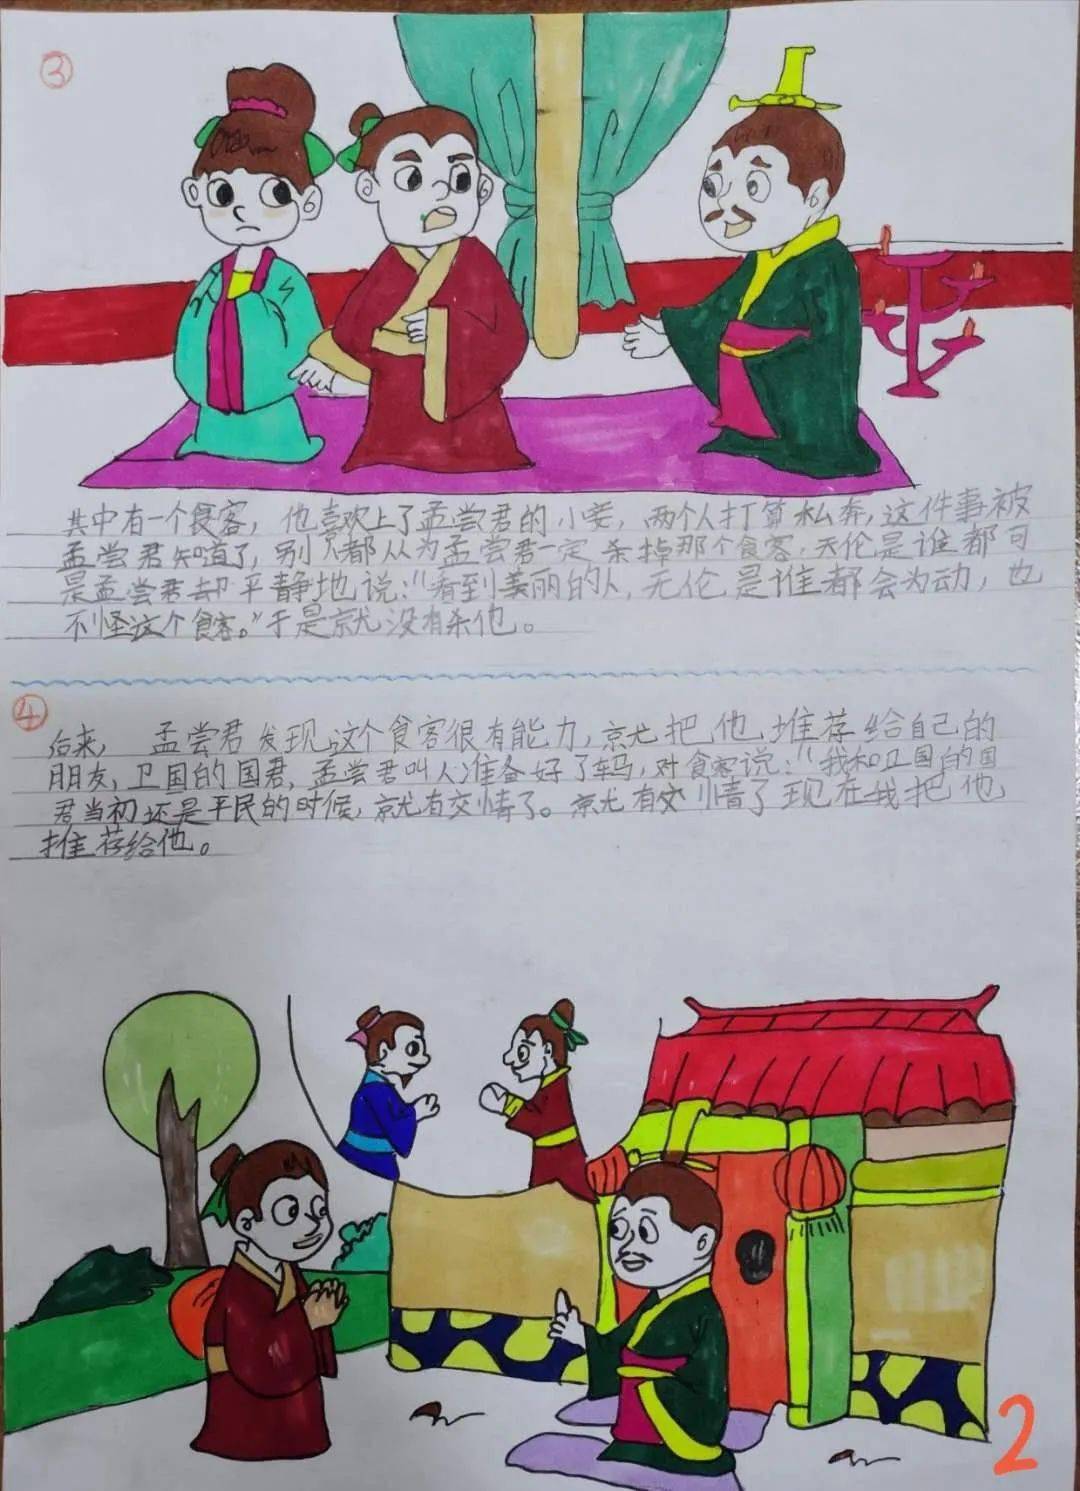 ③
其中有一个食客，他喜欢上了孟尝君的小妾，两个人打算私奔，这件事被
孟尝君知道了，别人都从为孟尝君一定杀掉那个食客，天伦是谁都可
是孟尝君却平静地说：“看到美丽的人，无伦是谁都会为动，也
不怪这个食客。”于是就没有杀他。
④
后来，孟尝君发现这个食客很有能力，就把他推荐给自己的
朋友，卫国的国君，孟尝君叫人准备好了车马，对食客说：“我和卫国的国
君当初还是平民的时候，就有交情了。就有交情了现在我把他
推荐给他。
2